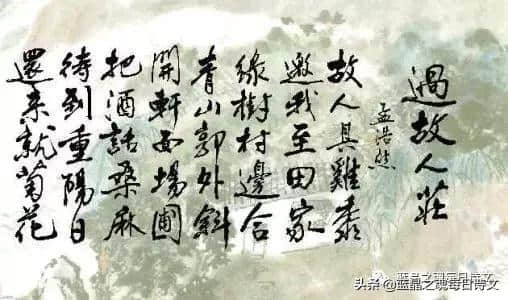 過故人莊
孟浩然
故人具雞黍
邀我至田家
綠樹村邊合
青山郭外斜
開軒面場圃
把酒話桑麻
待到重陽日
還来就菊花
蓝晶之魂每日诗文
头条 @蓝晶之魂每日诗文